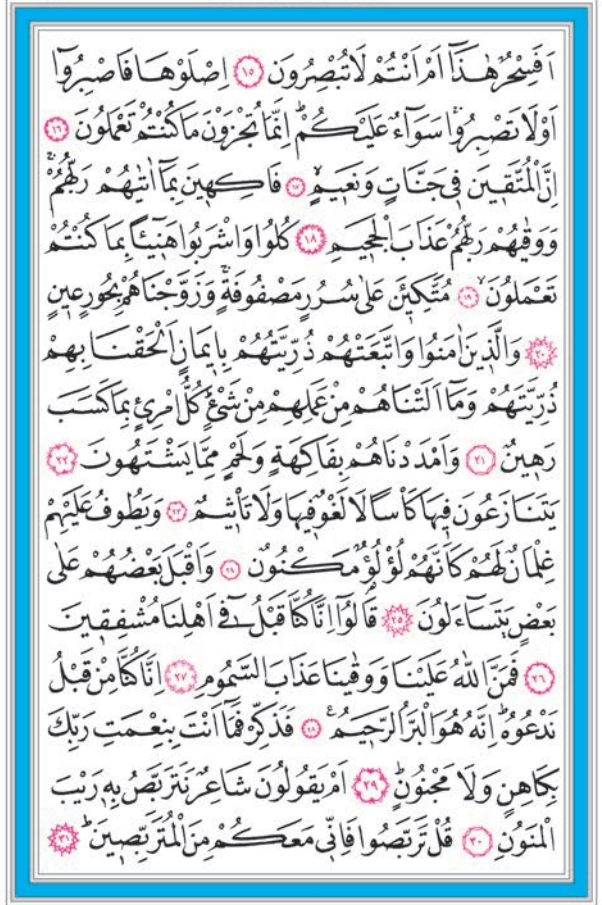 اَفَسِحْرٌ هٰذَٓا اَمْ اَنْتُمْ لَا تُبْصِرُونَ ﴿١٥﴾ اِصْلَوْهَا فَاصْبِرُٓوا
اَوْ لَا تَصْبِرُواۚ سَوَٓاءٌ عَلَيْكُمْۜ اِنَّمَا تُجْزَوْنَ مَا كُنْتُمْ تَعْمَلُونَ ﴿١٦﴾
اِنَّ الْمُتَّقٖينَ فٖى جَنَّاتٍ وَنَعٖيمٍۙ ﴿١٧﴾ فَاكِهٖينَ بِمَٓا اٰتٰيهُمْ رَبُّهُمْۚ
وَوَقٰيهُمْ رَبُّهُمْ عَذَابَ الْجَحٖيمِ ﴿١٨﴾ كُلُوا وَاشْرَبُوا هَنٖٓيـًٔا بِمَا كُنْتُمْ
تَعْمَلُونَۙ ﴿١٩﴾ مُتَّكِـٖٔينَ عَلٰى سُرُرٍ مَصْفُوفَةٍۚ وَزَوَّجْنَاهُمْ بِحُورٍ عٖينٍ
﴿٢٠﴾ وَالَّذٖينَ اٰمَنُوا وَاتَّبَعَتْهُمْ ذُرِّيَّتُهُمْ بِاٖيمَانٍ اَلْحَقْنَا بِهِمْ
ذُرِّيَّتَهُمْ وَمَٓا اَلَتْنَاهُمْ مِنْ عَمَلِهِمْ مِنْ شَیْءٍۜ كُلُّ امْرِئٍ بِمَا كَسَبَ
رَهٖينٌ ﴿٢١﴾ وَاَمْدَدْنَاهُمْ بِفَاكِهَةٍ وَلَحْمٍ مِمَّا يَشْتَهُونَ ﴿٢٢﴾
يَتَنَازَعُونَ فٖيهَا كَاْسًا لَا لَغْوٌ فٖيهَا وَلَا تَاْثٖيمٌ ﴿٢٣﴾ وَيَطُوفُ عَلَيْهِمْ
غِلْمَانٌ لَهُمْ كَاَنَّهُمْ لُؤْلُؤٌ مَكْنُونٌ ﴿٢٤﴾ وَاَقْبَلَ بَعْضُهُمْ عَلٰى
بَعْضٍ يَتَسَٓاءَلُونَ ﴿٢٥﴾ قَالُٓوا اِنَّا كُنَّا قَبْلُ فٖٓى اَهْلِنَا مُشْفِقٖينَ
﴿٢٦﴾ فَمَنَّ اللّٰهُ عَلَيْنَا وَوَقٰينَا عَذَابَ السَّمُومِ ﴿٢٧﴾ اِنَّا كُنَّا مِنْ قَبْلُ
نَدْعُوهُۜ اِنَّهُ هُوَ الْبَرُّ الرَّحٖيمُ ﴿٢٨﴾ فَذَكِّرْ فَمَٓا اَنْتَ بِنِعْمَتِ رَبِّكَ
بِكَاهِنٍ وَلَا مَجْنُونٍۜ ﴿٢٩﴾ اَمْ يَقُولُونَ شَاعِرٌ نَتَرَبَّصُ بِهٖ رَيْبَ
الْمَنُونِ ﴿٣٠﴾ قُلْ تَرَبَّصُوا فَاِنّٖى مَعَكُمْ مِنَ الْمُتَرَبِّصٖينَۜ ﴿٣١﴾